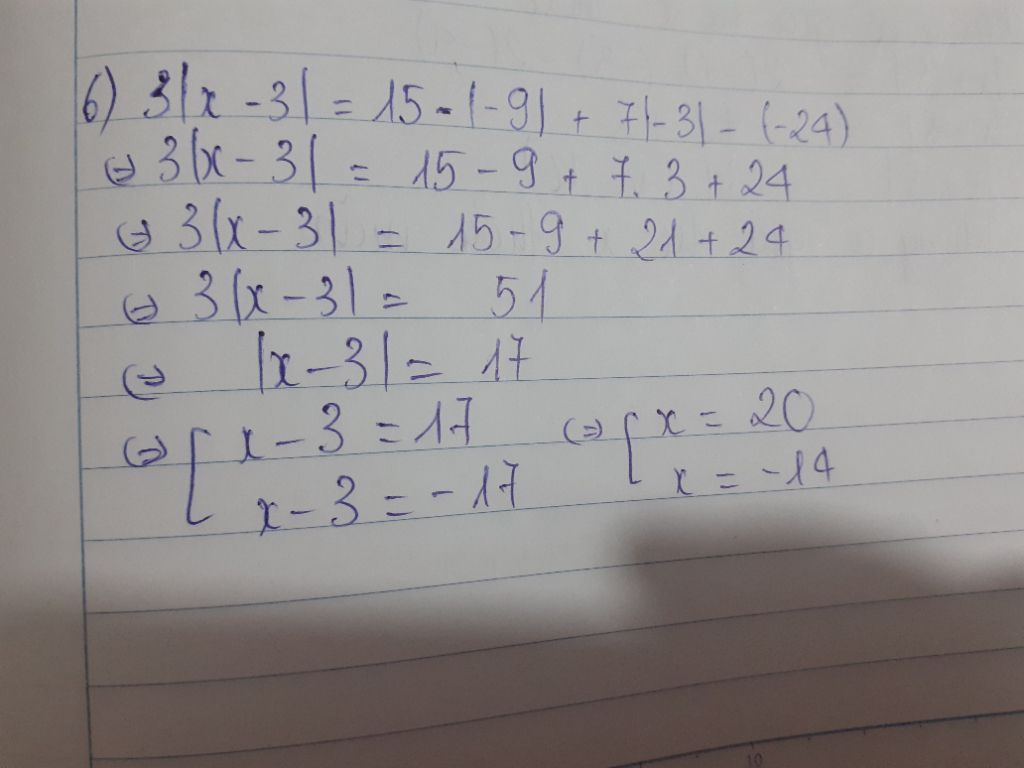 6) 3|x - 3| = 15 - |-9| + 7|-3| - (-24)
⇔ 3|x - 3| = 15 - 9 + 7. 3 + 24
⇔ 3|x - 3| = 15 - 9 + 21 + 24
⇔ 3|x - 3| = 51
⇔ |x - 3| = 17
⇔ [ x - 3 = 17 ⇔ [ x = 20
x - 3 = -17 x = -14
10